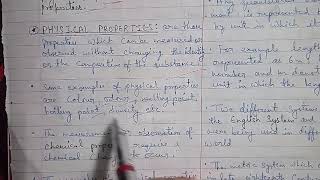 Properties.
PHYSICAL PROPERTIES: are those
properties which can be measured or
observed without changing the identity
or the composition of the substance
Some examples of physical properties
are colour, odour, melting point,
boiling point, density etc.
The measurement or observation of
chemical property require a
chemical change to occur.
is represented
by unit in which it
For example length
represented as 6m
number and m denot
unit in which the
Two different systems
the English System and
were being used in diff
world
The metric system which o